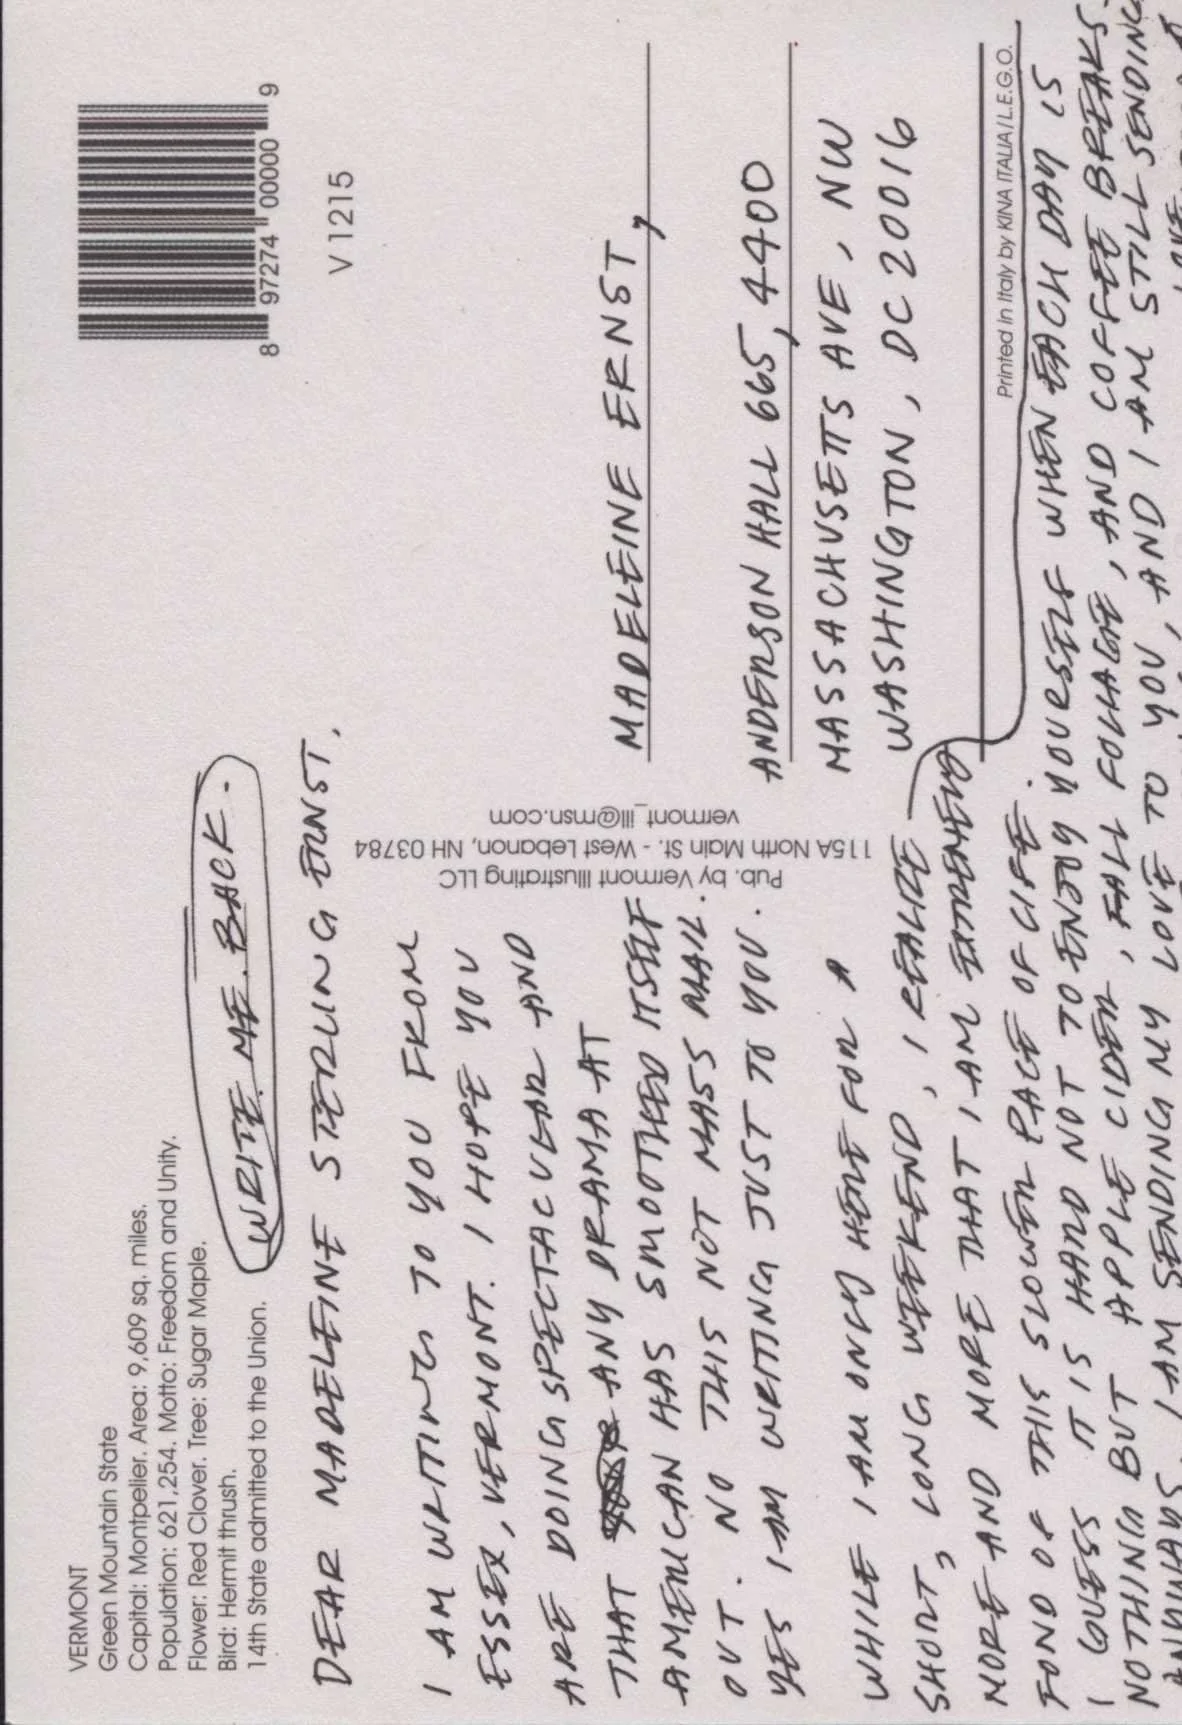 VERMONT
Green Mountain State
Capital: Montpelier. Area: 9,609 sq. miles.
Population: 621,254. Motto: Freedom and Unity.
Flower: Red Clover. Tree: Sugar Maple.
Bird: Hermit thrush.
14th State admitted to the Union.
WRITE ME BACK.
DEAR MADELEINE STERLING ERNST,
I AM WRITING TO YOU FROM
ESSEX, VERMONT. I HOPE YOU
ARE DOING SPECTACULAR AND
THAT ANY DRAMA AT
AMERICAN HAS SMOOTHED ITSELF
OUT. NO THIS NOT MASS MAIL.
YES I AM WRITING JUST TO YOU.
WHILE I AM ONLY HERE FOR A
SHORT, LONG WEEKEND, I REALIZE
MORE AND MORE THAT I AM EXTREMELY
FOND OF THIS SLOWER PACE OF LIFE.
I GUESS IT IS HARD NOT TO ENJOY YOURSELF WHEN EACH DAY IS
NOTHING BUT APPLE CIDER, FALL FOLIAGE, AND COFFEE BREAKS.
ANYWAYS, I AM SENDING MY LOVE TO YOU, AND I AM STILL SENDING
LOVE
Pub. by Vermont Illustrating LLC
115A North Main St. - West Lebanon, NH 03784
vermont_ill@msn.com
8 97274 00000 9
V1215
MADELEINE ERNST,
ANDERSON HALL 665, 4400
MASSACHUSETTS AVE, NW
WASHINGTON, DC 20016
Printed in Italy by KINA ITALIA/L.E.G.O.